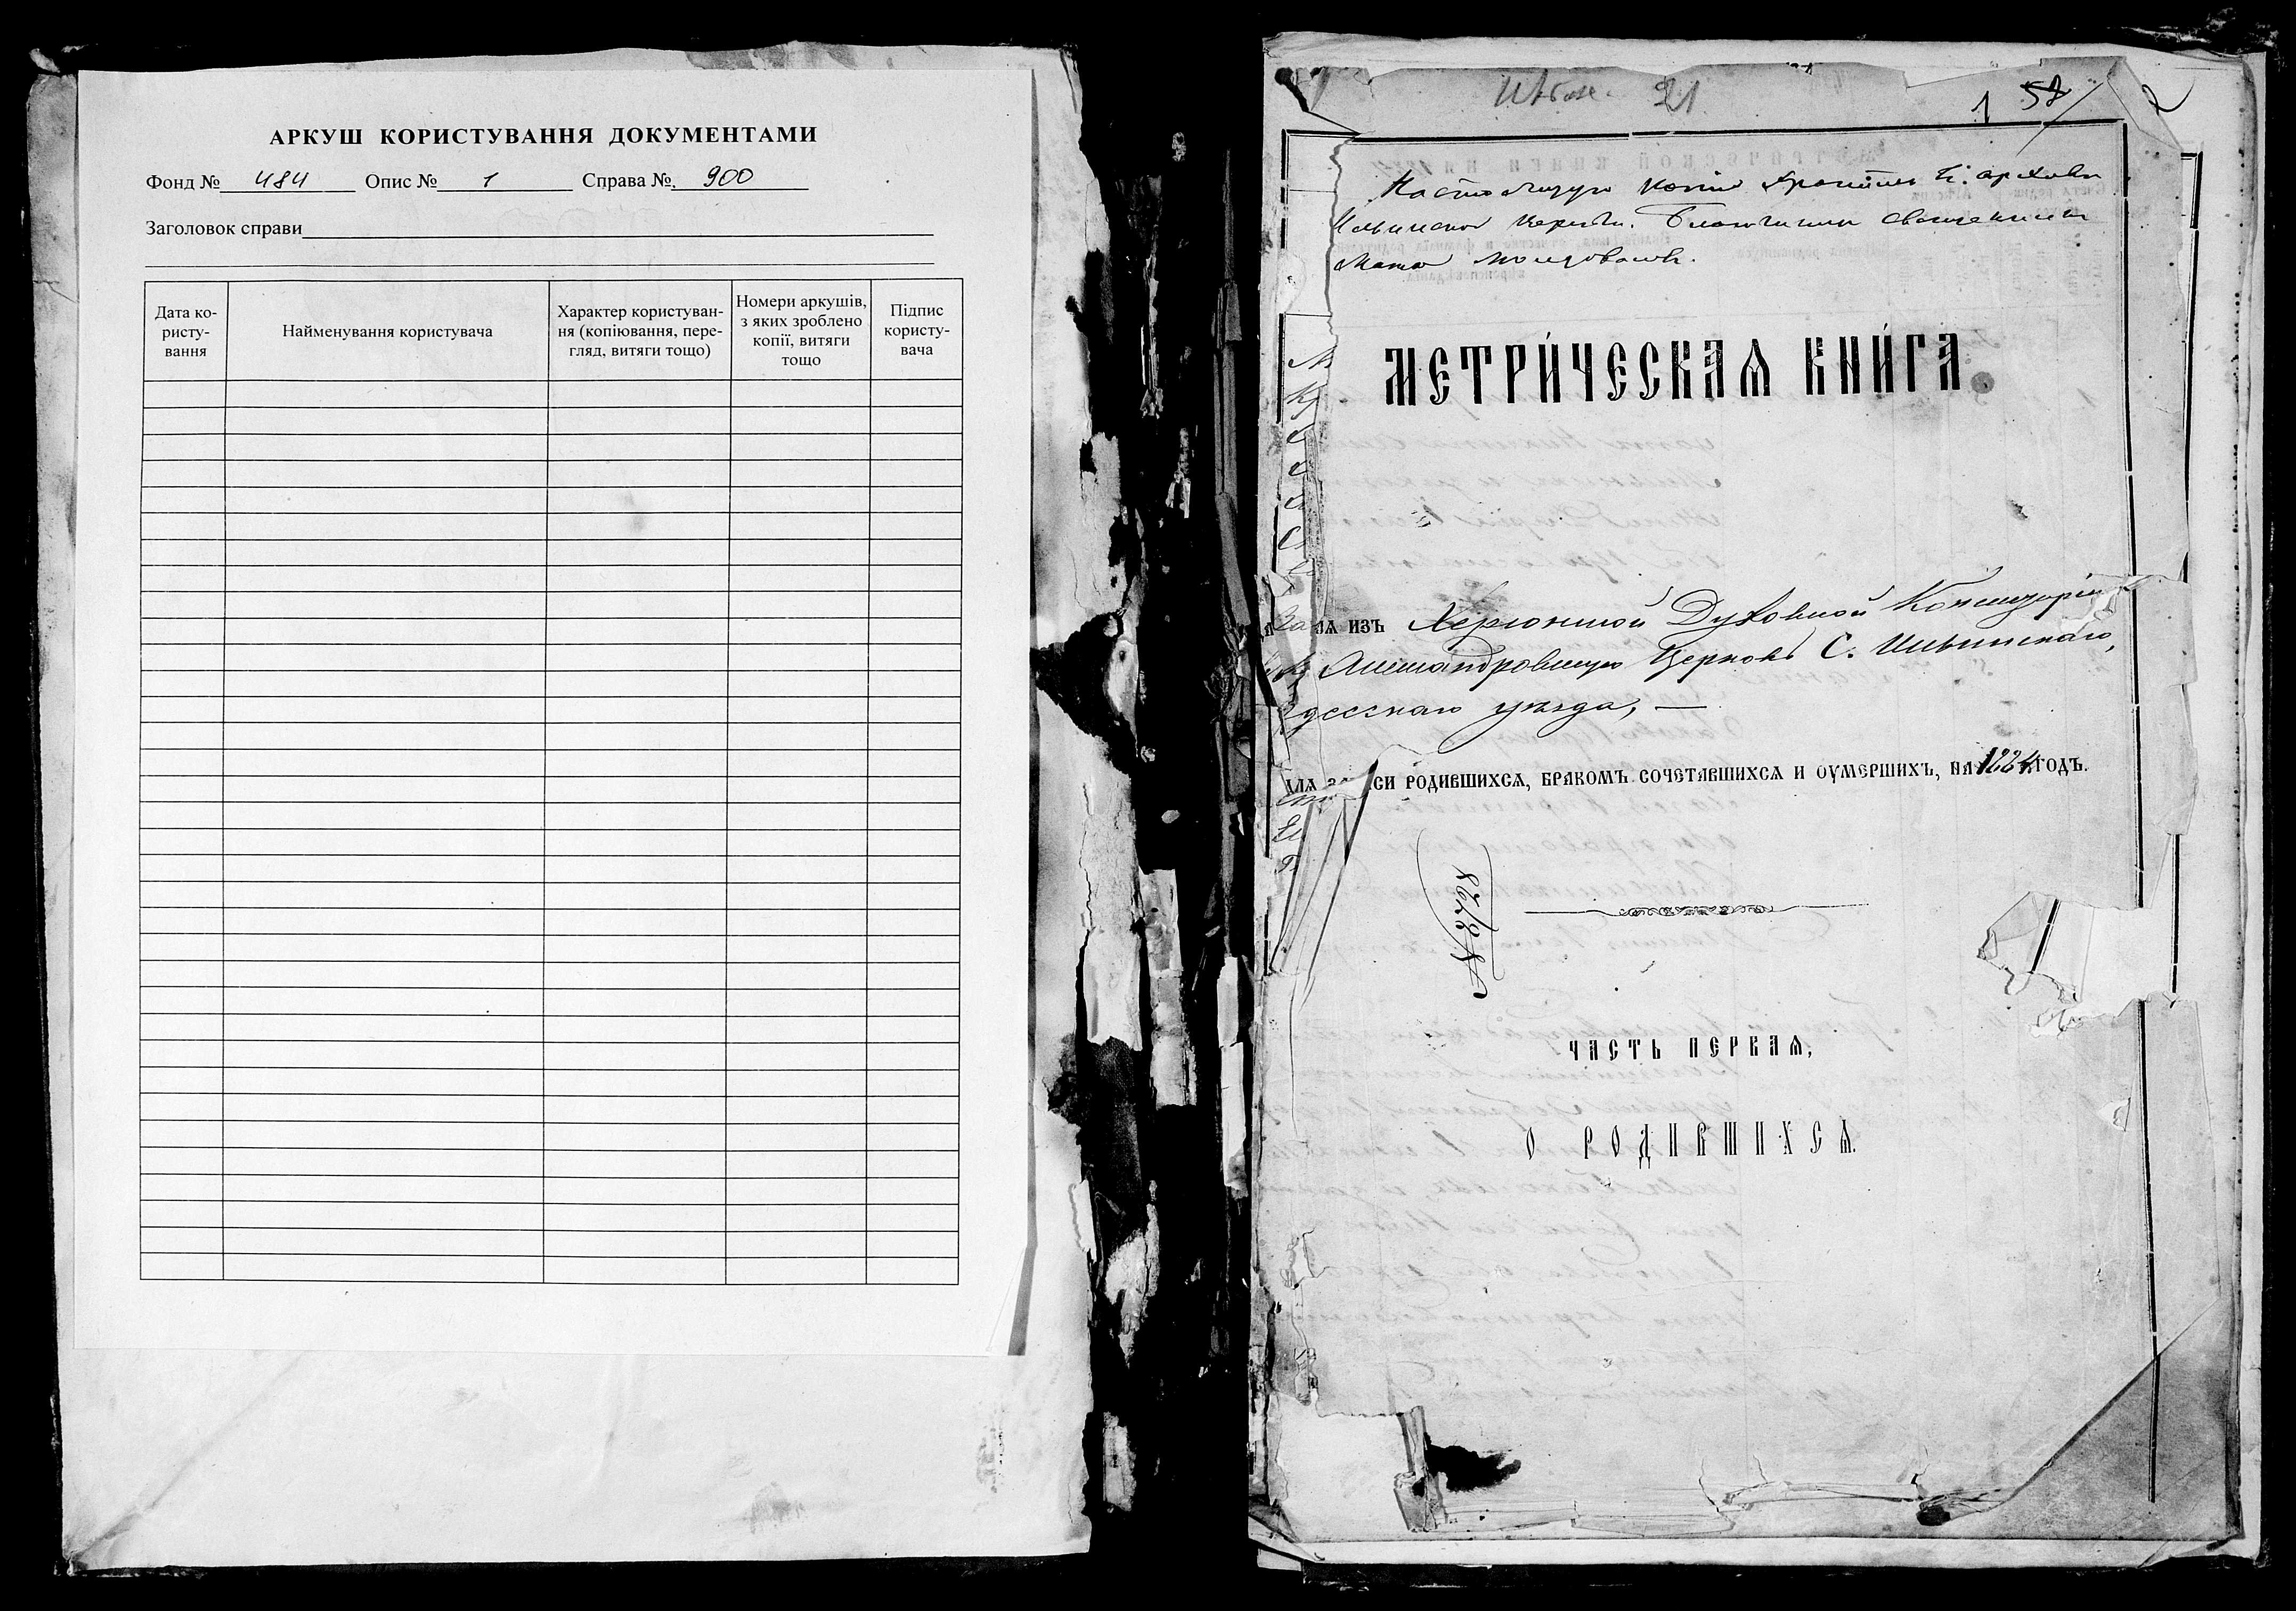 АРКУШ КОРИСТУВАННЯ ДОКУМЕНТАМИ
Фонд № 484 Опис № 1 Справа № 900
Заголовок справи
Дата ко-
ристу-
вання
Найменування користувача
Характер користуван-
ня (копіювання, пере-
гляд, витяги тощо)
Номери аркушів,
з яких зроблено
копії, витяги
тощо
Підпис
користу-
вача
21
1 58 2
Настоящую копію хранить въ архивѣ
церкви. Благочинный священникъ
МЕТРИ́ЧЕСКАЯ КНИ́ГА
ИЗЪ Херсонской Духовной Консисторіи
Александровскую Церковь С. Ильинскаго,
Одесскаго уѣзда, —
ДЛЯ ЗАПИСИ РОДИВШИХСЯ, БРАКОМЪ СОЧЕТАВШИХСЯ И ОУМЕРШИХЪ, НА 1884 ГОДЪ.
ЧАСТЬ ПЕРВАЯ,
О РОДИВШИХСЯ.